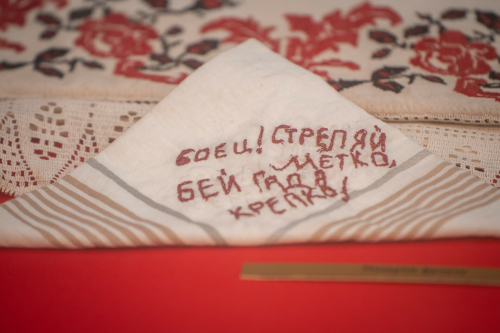 БОЕЦ! СТРЕЛЯЙ
МЕТКО,
БЕЙ ГАДА
КРЕПКО!